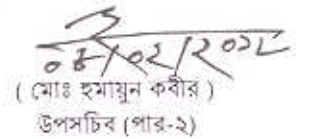 ০৪/০২/২০১৮
( মোঃ হুমায়ুন কবীর )
উপসচিব (পার-২)